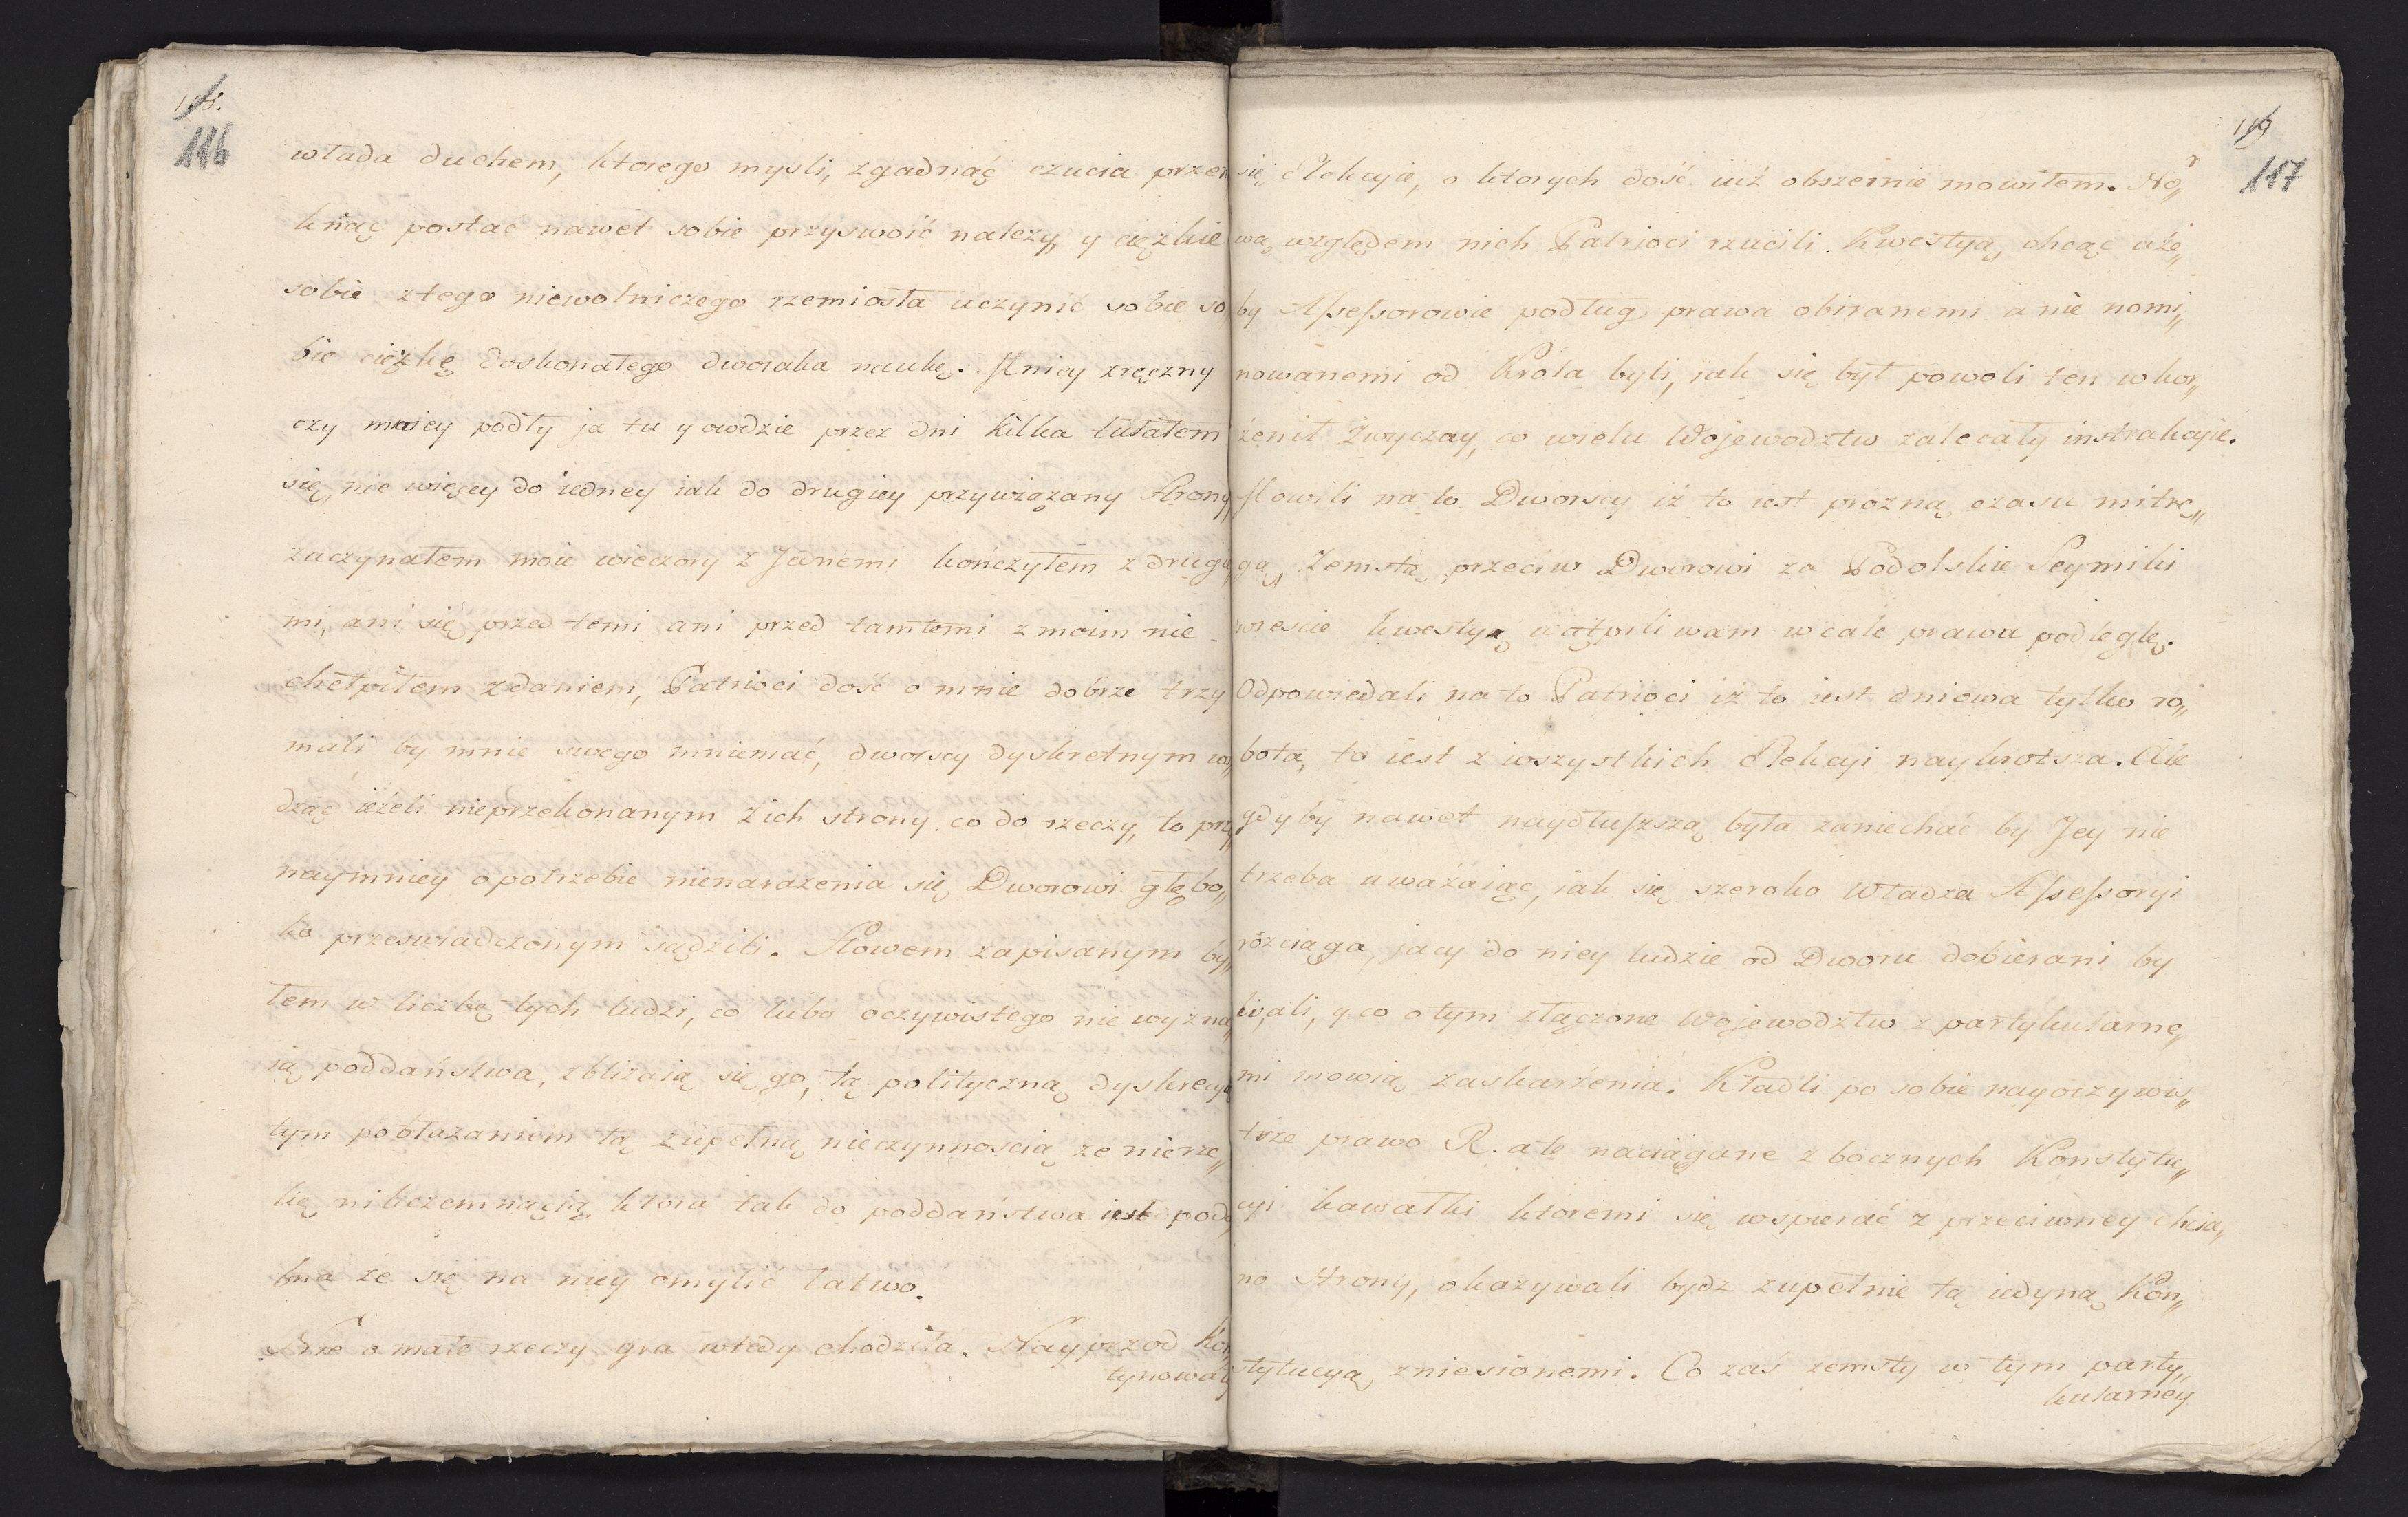 115.
116
włada duchem, ktorego mysli, zgadnąć czucia przen
knąć postać nawet sobie przyswoić nalezy, y cięzkie
sobie ztego niewolniczego rzemiosła uczynić sobie so
bie cięzkę doskonałego dworaka naukę. Mniey zręczny
czy mniey podły ja tu y owdzie przez dni kilka tułałem
się, nie więcey do iedney iak do drugiey przywiązany Strony
zaczynałem moie wieczory z Jednemi kończyłem z drugie
mi, ani się przed temi ani przed tamtemi z moim nie
chełpiłem zdaniem, Patrioci dość o mnie dobrze trzy
mali by mnie swego mniemać, dworscy dyskretnym wi
dząc ieżeli nieprzekonanym z ich strony co do rzeczy, to przy
naymniey o potrzebie nienarazenia się Dworowi głębo„
ko przeswiadczonym sądzili. Słowem zapisanym by„
łem w liczbę tych ludzi, co lubo oczywistego nie wyzna
ią poddaństwa, zbliżaią się go, tą polityczną dyskrecyą
tym pobłazaniem tą zupełną nieczynnoscią ze nierze„
kę nikczemnącią ktora tak do poddaństwa iest podo
bna że się na niey omylić łatwo.
Nie o małe rzeczy gra wtedy chodziła. Nayprzod kon
tynowały
116
117
się Elekcyie, o ktorych dość iuż obszernie mowiłem. No„
wą względem nich Patrioci rzucili Kwestyą, chcąc aże„
by Assessorowie podług prawa obiranemi a nie nomi„
nowanemi od Krola byli, iak się był powoli ten wkor„
żenił Zwyczay, co wielu Wojewodztw zalecały instrukcyie.
Mowili na to Dworscy iż to iest prozną czasu mitrę„
gą, Zemstą przeciw Dworowi za Podolskie Seymiki
wrescie kwestyą wątpliwam wcale prawu podległę.
Odpowiedali na to Patrioci iż to iest dniowa tylko ro„
bota, to iest z wszystkich Elekcyi naykrotsza. Ale
gdyby nawet naydłuższą była zaniechać by Jey nie
trzeba uważaiąc, iak się szeroko Władza Assessoryi
rozciąga, jacy do niey ludzie od Dworu dobierani by
wali, y co o tym złączone Wojewodztw z partykularne„
mi mowią zaskarżenia. Kładli po sobie nayoczywis„
trze prawo R. ale naciągane z bocznych Konstytu„
cyi kawałki ktoremi się wspierać z przeciwney chcia„
no Strony, okazywali bydz zupełnie tą iedyną Kon„
stytucyą zniesionemi. Co zaś zemsty w tym party„
kularney